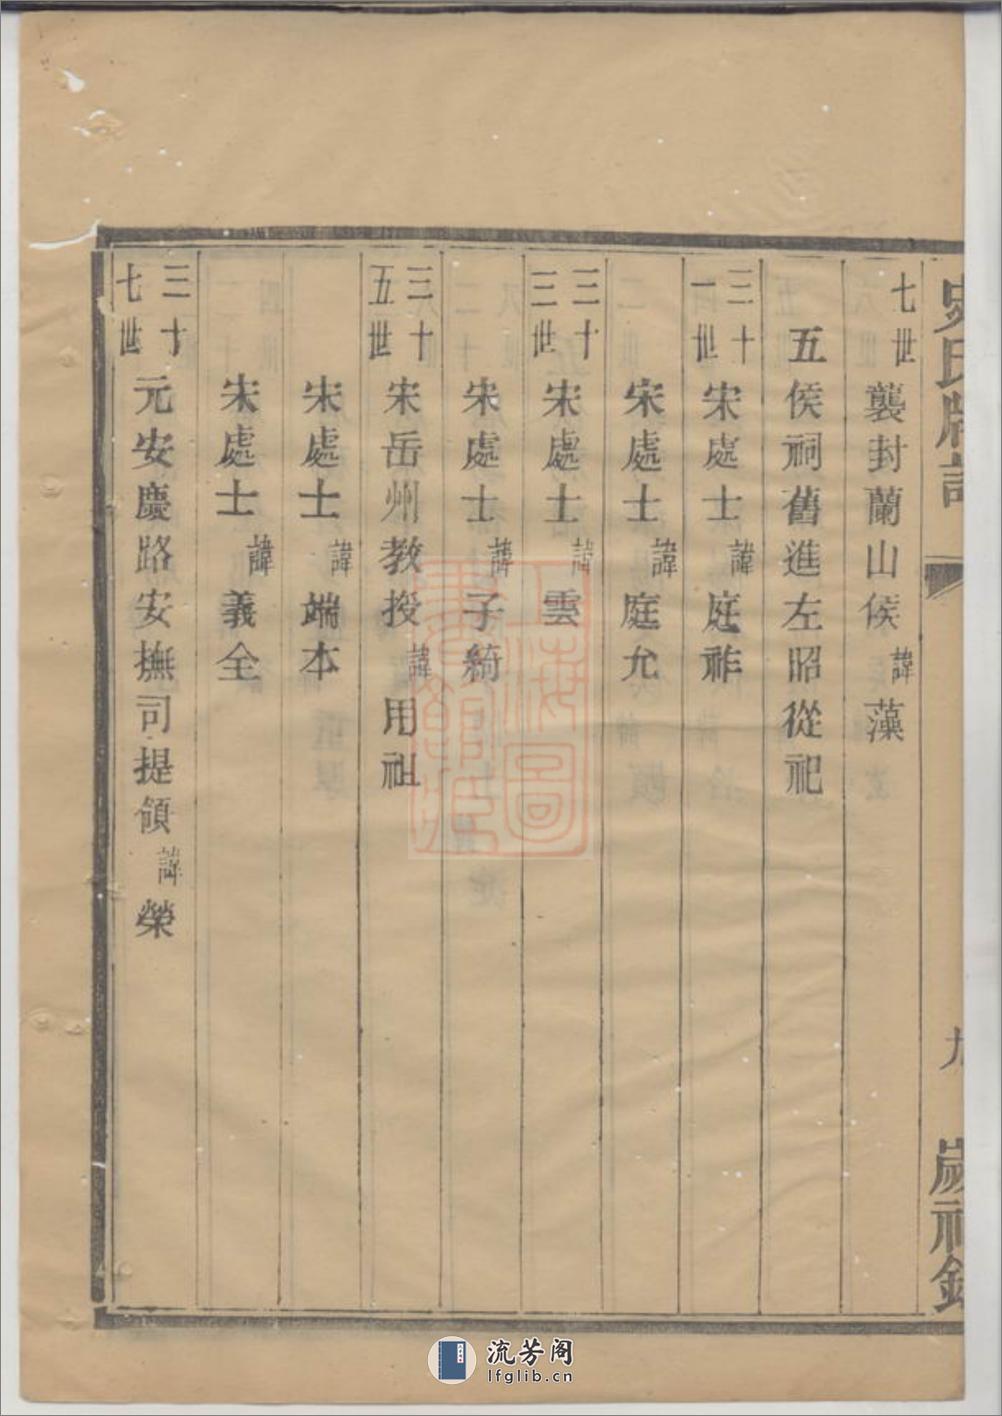 史氏牒譜
九
歲祀錄
七世襲封蘭山侯諱藻
五侯祠舊進左昭從祀
三十一世宋處士諱庭祚
宋處士諱庭允
三十三世宋處士諱雲
宋處士諱子綺
三十五世宋岳州教授諱用祖
宋處士諱端本
宋處士諱義全
三十七世元安慶路安撫司提領諱榮
上海圖書館藏
流芳阁
lfglib.cn